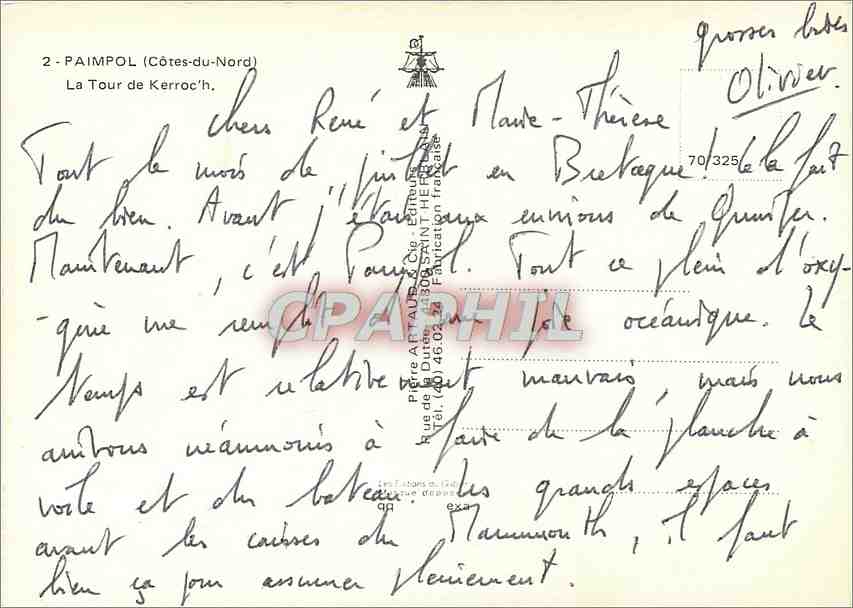 grosses bises
Olivier.
2 - PAIMPOL (Côtes-du-Nord)
La Tour de Kerroc'h.
70/325
Chers René et Marie-Thérèse
Tout le mois de juillet en Bretagne ! Ça fait
du bien. Avant j'étais aux environs de Quimper.
Maintenant, c'est Paimpol. Tout ce plein d'oxy-
-gène me remplit d'une joie océanique. Le
temps est relativement mauvais, mais nous
arrivons néanmoins à faire de la planche à
voile et du bateau. Les grands espaces
avant les caisses du Mammouth, il faut
bien ça pour assumer pleinement.
Pierre ARTAUD & Cie - Editeurs
Rue de la Dutée - 44800 SAINT-HERBLAIN
Tél. (40) 46.02.24 Fabrication française
Les Editions du Gabier
Marque déposée
exa
CPAPHIL